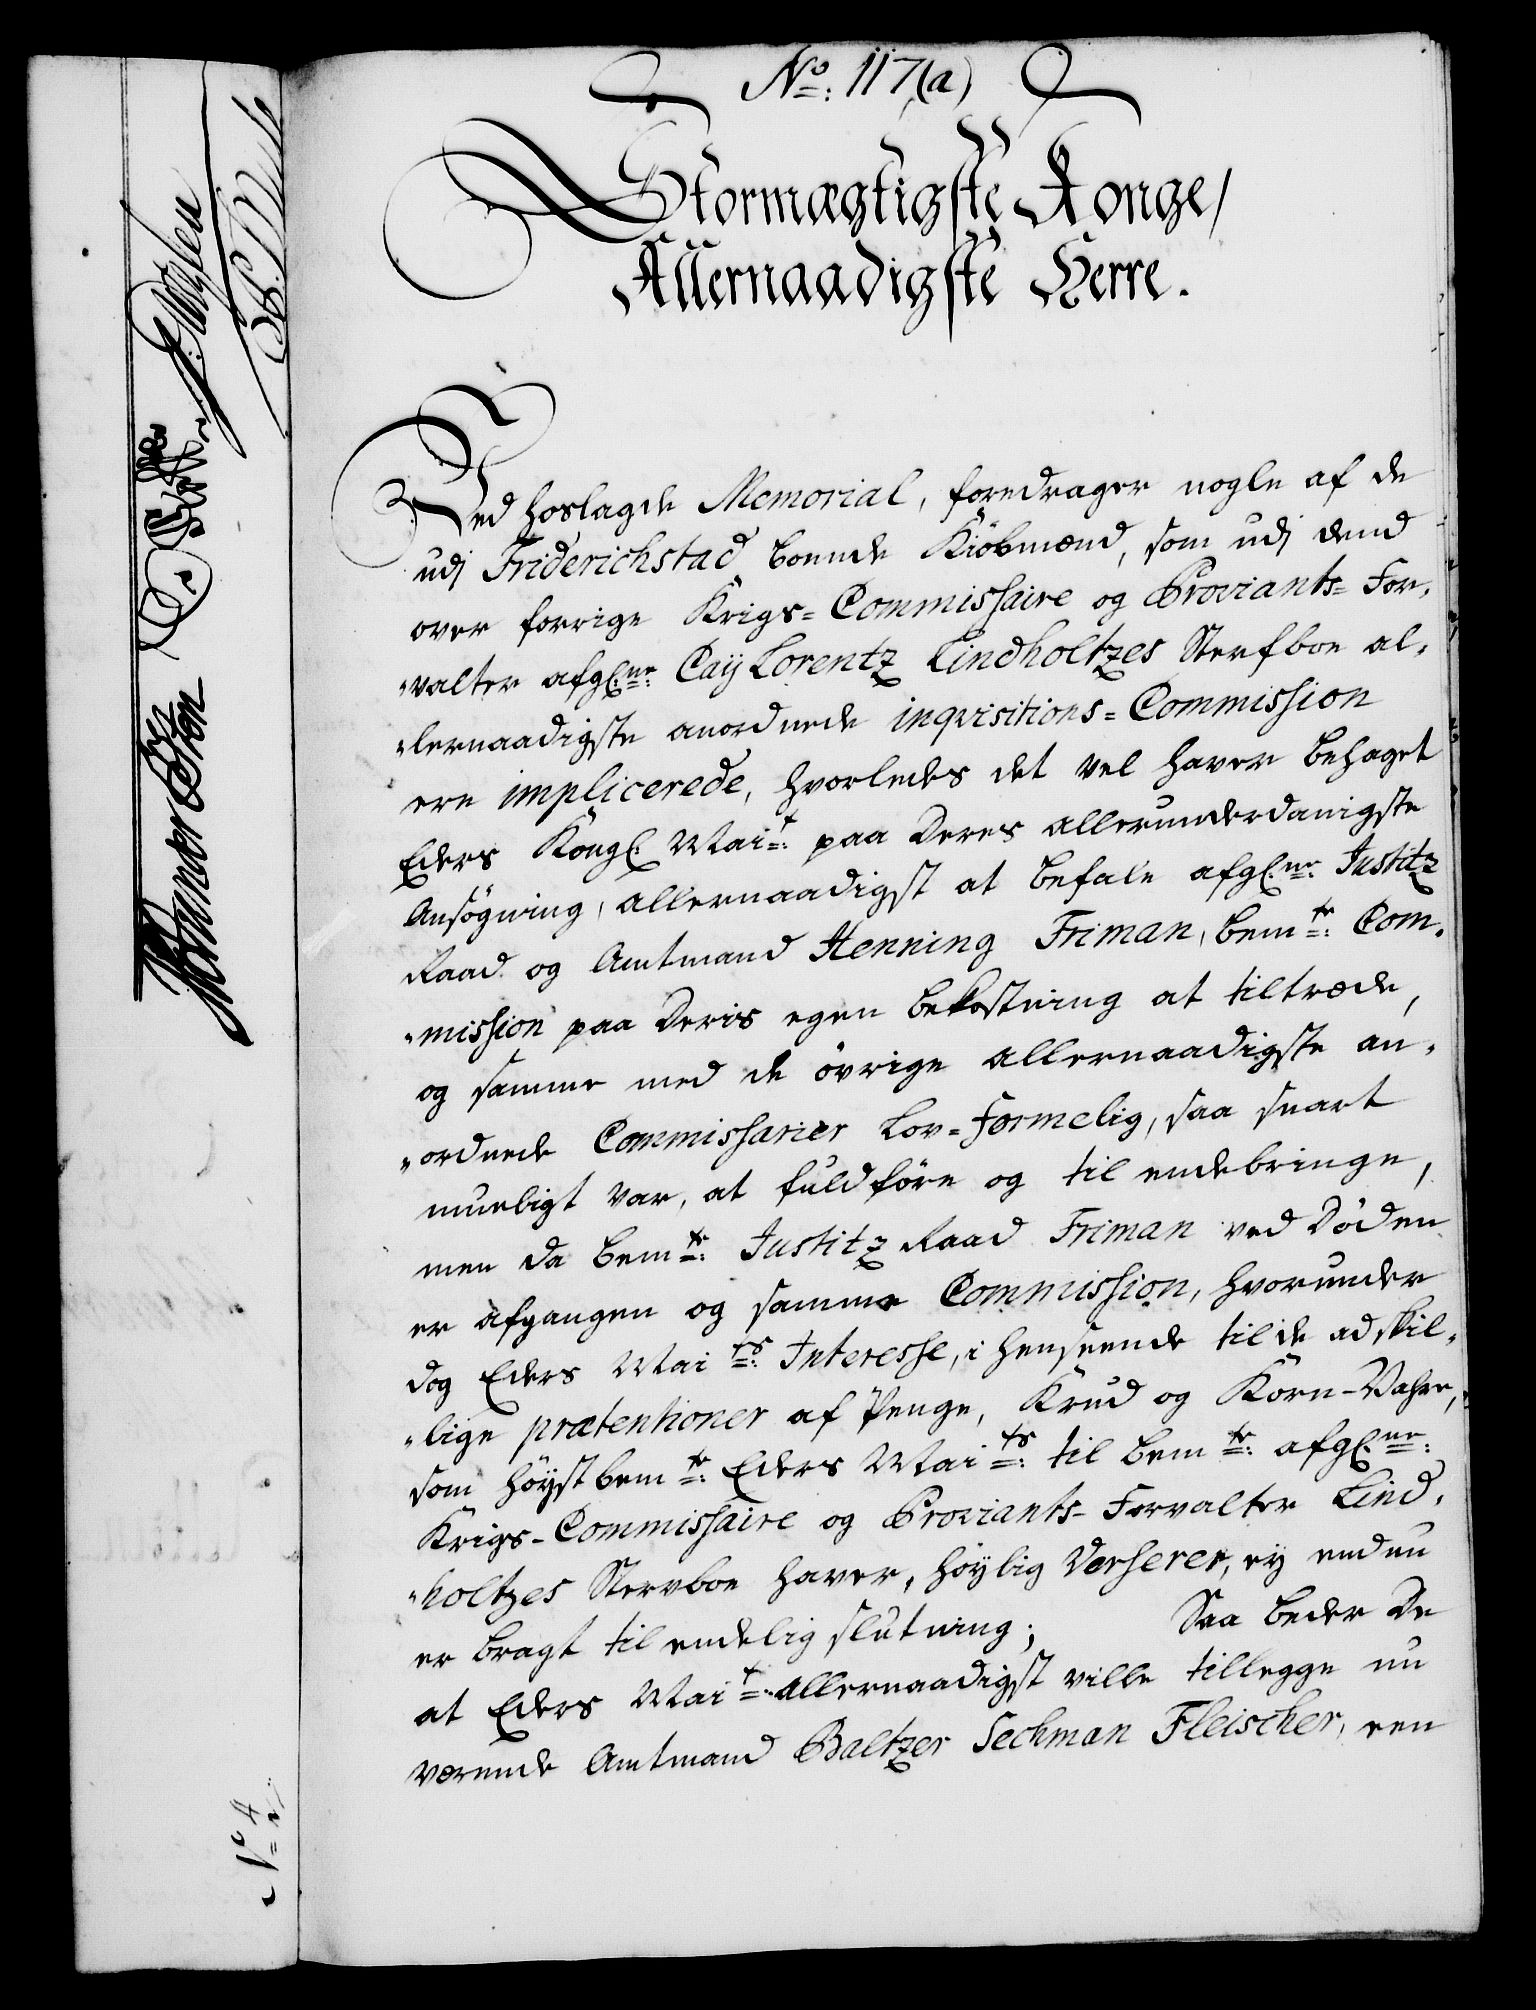 No: 117(a)
Stormægtigste Konge/
Allernaadigste Herre.
Ved hoslagde Memorial, foredrager nogle af de
udj Friderichstad boende Kiöbmænd, som udj dend
over forrige Krigs=Commissaire og Proviants=For,
"valter afgl:ne: Caÿ Lorentz Lindholtzes Sterfboe al,
"lernaadigste anordnede inqvisitions=Commission
ere implicerede, hvorledes det vel haver behaget
Eders Kongl: Mai:t: paa Deres allerunderdanigste
Ansögning, allernaadigst at befale afgl:ne: Justitz
Raad og Amtmand Henning Friman, bem:te: Com,
"mission paa Deris egen bekostning at tiltræde,
og samme med de övrige allernaadigste an,
"ordnede Commissarier Lov=Formelig, saa snart
mueligt var, at fuldföre og til endebringe,
men da bem:te: Justitz Raad Friman ved Döden
er afgangen og samme Commission, hvorunder
dog Eders Mai:ts: Interesse, i henseende til de adskil,
"lige prætentioner af Penge, Krud og Korn-Vahre,
som höÿstbem:te: Eders Mai:ts: til bem:te: afgl:ne:
Krigs-Commissaire og Proviants-Forvalter Lind,
"holtzes Stervboe haver, höÿlig Verserer, eÿ endnu
er bragt til endelig slutning; Saa beder De
at Eders Mai:t: allernaadigst ville tillegge nu
værende Amtmand Baltzer Sechman Fleischer, een
No 4